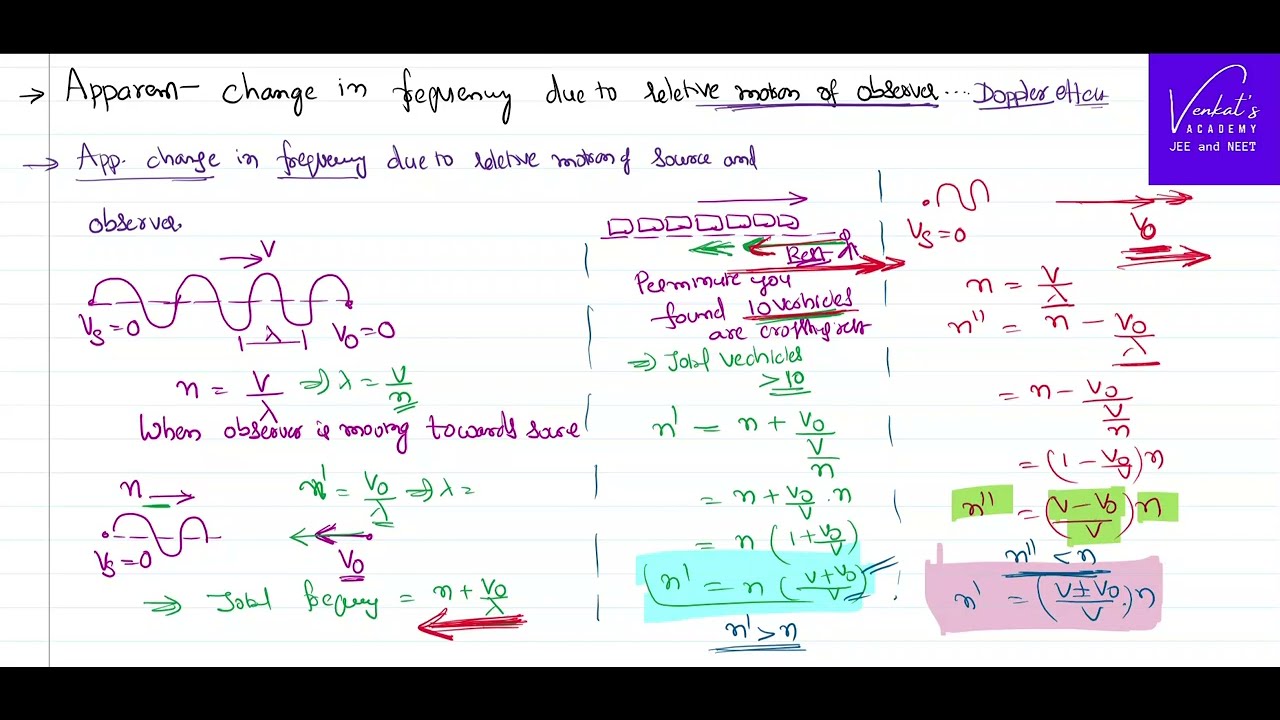 → Apparent change in frequency due to reletive motion of observer.... Doppler effect
→ App. change in frequency due to reletive motion of source and
observer.
Venkat's
ACADEMY
JEE and NEET
V
V_S = 0
λ
V_O = 0
n = V/λ ⇒ λ = V/n
When observer is moving towards
n
n' = V_O/λ ⇒ λ =
V_S = 0
V_O
⇒ Total = n + V_O/λ
Rest
Per minute you
found 10 vechicles
are
⇒ Total vechicles
> 10
n' = n + V_O/(V/n)
= n + V_O/V . n
= n (1 + V_O/V)
(n' = n (V + V_O/V)
n' > n
V_S = 0
V_O
n = V/λ
n'' = n - V_O/λ
= n - V_O/(V/n)
= (1 - V_O/V) n
n'' = (V - V_O/V) n
n'' < n
n' = (V ± V_O/V .) n